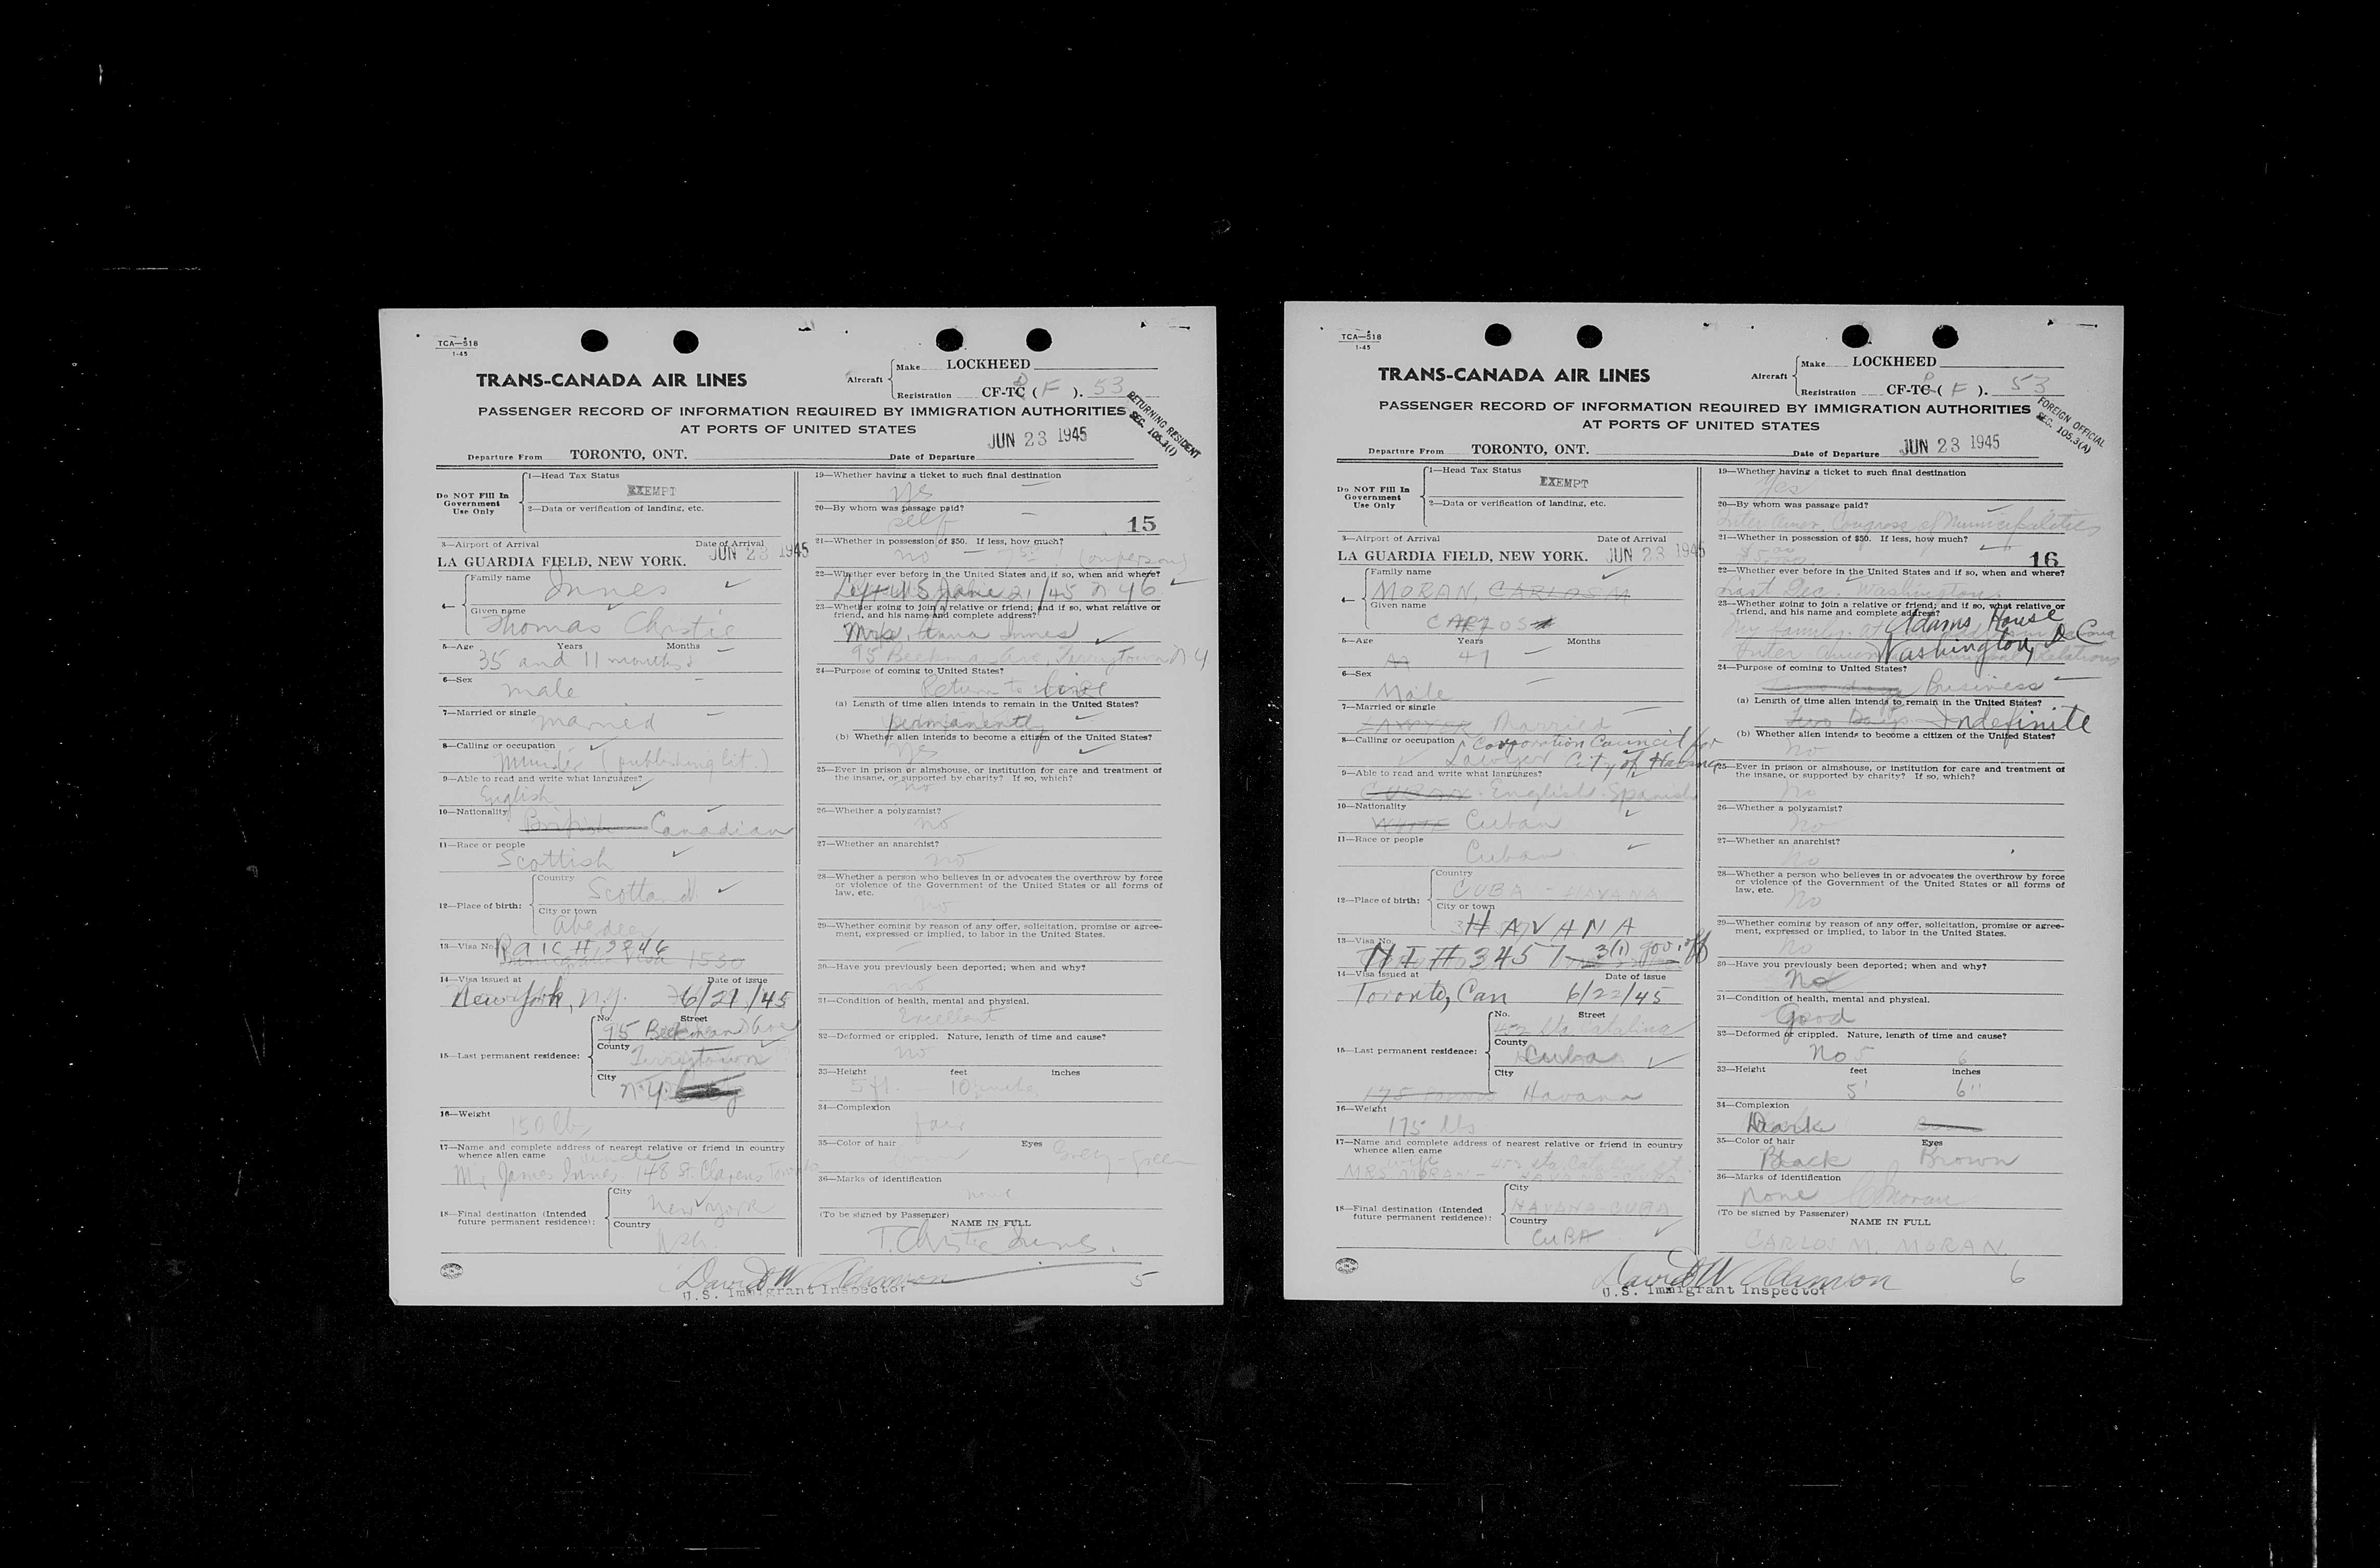 TCA—518
1-45
TRANS-CANADA AIR LINES
Aircraft
Make LOCKHEED
Registration CF-TC (F). 53
PASSENGER RECORD OF INFORMATION REQUIRED BY IMMIGRATION AUTHORITIES
AT PORTS OF UNITED STATES
RETURNING RESIDENT
SEC. 105.3(1)
JUN 23 1945
Departure From TORONTO, ONT. Date of Departure
Do NOT Fill In
Government
Use Only
1—Head Tax Status
EXEMPT
2—Data or verification of landing, etc.
3—Airport of Arrival Date of Arrival
LA GUARDIA FIELD, NEW YORK. JUN 23 1945
4— Family name
Innes
Given name
Thomas Christie
5—Age Years Months
35 and 11 months
6—Sex
male
7—Married or single
married
8—Calling or occupation
Minister (publishing lit.)
9—Able to read and write what languages?
English
10—Nationality
British Canadian
11—Race or people
Scottish
12—Place of birth:
Country
Scotland
City or town
Aberdeen
13—Visa No.
1530
14—Visa issued at Date of issue
New York, N.Y. 6/21/45
15—Last permanent residence:
No. Street
95 Beekman Ave
County
Tarrytown
City
N.Y.
16—Weight
150 lbs
17—Name and complete address of nearest relative or friend in country
whence alien came
uncle
Mr James Innes 148 St. Clarens Toronto
18—Final destination (Intended
future permanent residence):
City
New York
Country
USA.
19—Whether having a ticket to such final destination
yes
20—By whom was passage paid?
self
15
21—Whether in possession of $50. If less, how much?
no (on person)
22—Whether ever before in the United States and if so, when and where?
Left U S June 21/45
23—Whether going to join a relative or friend; and if so, what relative or
friend, and his name and complete address?
Mrs. Anna Innes
95 Beekman Ave, Tarrytown N Y
24—Purpose of coming to United States?
Return to
(a) Length of time alien intends to remain in the United States?
permanently
(b) Whether alien intends to become a citizen of the United States?
yes
25—Ever in prison or almshouse, or institution for care and treatment of
the insane, or supported by charity? If so, which?
no
26—Whether a polygamist?
no
27—Whether an anarchist?
no
28—Whether a person who believes in or advocates the overthrow by force
or violence of the Government of the United States or all forms of
law, etc.
no
29—Whether coming by reason of any offer, solicitation, promise or agree-
ment, expressed or implied, to labor in the United States.
30—Have you previously been deported; when and why?
no
31—Condition of health, mental and physical.
Excellent
32—Deformed or crippled. Nature, length of time and cause?
no
33—Height feet inches
5 ft. 10 inches
34—Complexion
fair
35—Color of hair Eyes
Grey-green
36—Marks of identification
none
(To be signed by Passenger)
NAME IN FULL
T. Christie Innes.
David W Adamson
U.S. Immigrant Inspector
5
TCA—518
1-45
TRANS-CANADA AIR LINES
Aircraft
Make LOCKHEED
Registration CF-TC (F). 53
PASSENGER RECORD OF INFORMATION REQUIRED BY IMMIGRATION AUTHORITIES
AT PORTS OF UNITED STATES
FOREIGN OFFICIAL
SEC. 105.3(A)
JUN 23 1945
Departure From TORONTO, ONT. Date of Departure
Do NOT Fill In
Government
Use Only
1—Head Tax Status
EXEMPT
2—Data or verification of landing, etc.
3—Airport of Arrival Date of Arrival
LA GUARDIA FIELD, NEW YORK. JUN 23 1945
4— Family name
MORAN, CARLOS M
Given name
CARLOS
5—Age Years Months
47
6—Sex
Male
7—Married or single
LAWYER Married
8—Calling or occupation
Corporation Council for
Lawyer City of Havana
9—Able to read and write what languages?
CUBAN English Spanish
10—Nationality
WHITE Cuban
11—Race or people
Cuban
12—Place of birth:
Country
CUBA - HAVANA
City or town
HAVANA
13—Visa No.
NI # 3457 3(1) gov. off
14—Visa issued at Date of issue
Toronto, Can 6/22/45
15—Last permanent residence:
No. Street
452 Sta. Catalina
County
Cuba
City
Havana
16—Weight
175 lbs
17—Name and complete address of nearest relative or friend in country
whence alien came
wife
MRS MORAN - 452 Sta. Catalina St.
HAVANA - CUBA
18—Final destination (Intended
future permanent residence):
City
HAVANA - CUBA
Country
CUBA
19—Whether having a ticket to such final destination
Yes
20—By whom was passage paid?
Inter Amer. Congress of Municipalities
21—Whether in possession of $50. If less, how much?
16
22—Whether ever before in the United States and if so, when and where?
Last Dec. Washington
23—Whether going to join a relative or friend; and if so, what relative or
friend, and his name and complete address?
My family at Adams House
Washington, D C
24—Purpose of coming to United States?
Business
(a) Length of time alien intends to remain in the United States?
Two Days Indefinite
(b) Whether alien intends to become a citizen of the United States?
No
25—Ever in prison or almshouse, or institution for care and treatment of
the insane, or supported by charity? If so, which?
No
26—Whether a polygamist?
No
27—Whether an anarchist?
No
28—Whether a person who believes in or advocates the overthrow by force
or violence of the Government of the United States or all forms of
law, etc.
No
29—Whether coming by reason of any offer, solicitation, promise or agree-
ment, expressed or implied, to labor in the United States.
No
30—Have you previously been deported; when and why?
No
31—Condition of health, mental and physical.
Good
32—Deformed or crippled. Nature, length of time and cause?
No
33—Height feet inches
5' 6"
34—Complexion
Dark
35—Color of hair Eyes
Black Brown
36—Marks of identification
None C Moran
(To be signed by Passenger)
NAME IN FULL
CARLOS M. MORAN
David W Adamson
U.S. Immigrant Inspector
6